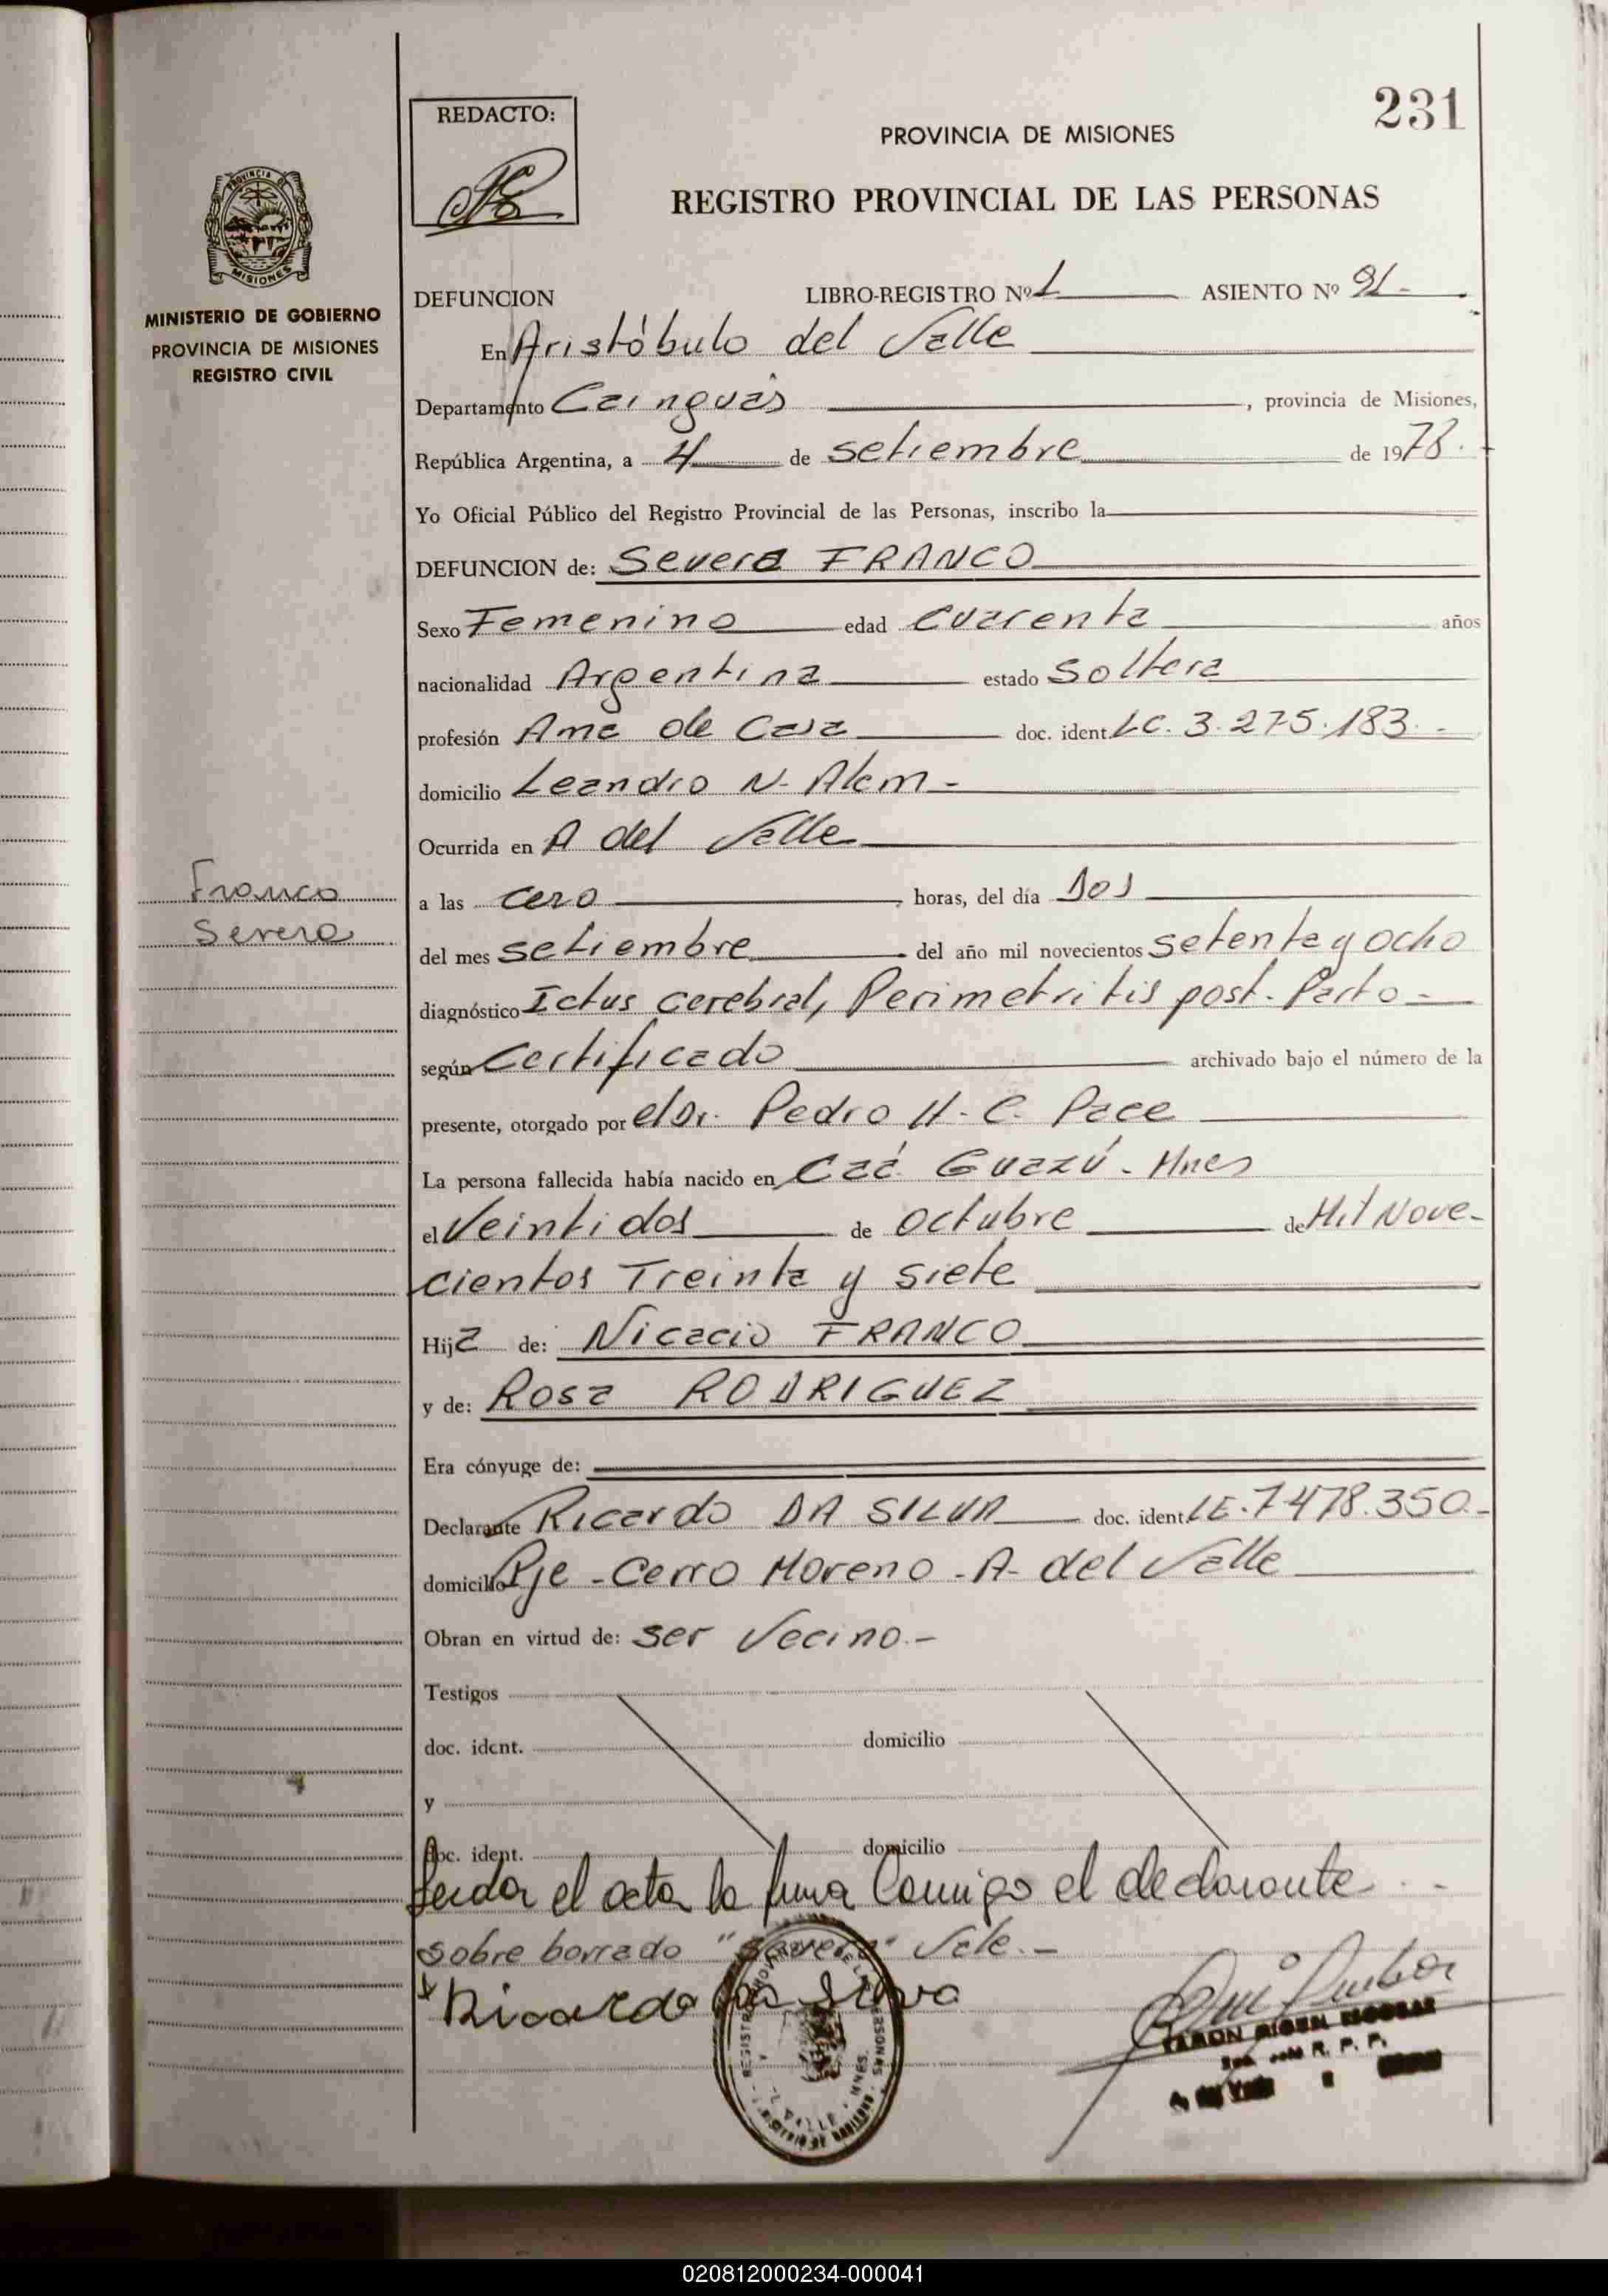 231
REDACTO:
PROVINCIA DE MISIONES
REGISTRO PROVINCIAL DE LAS PERSONAS
PROVINCIA DE
MISIONES
MINISTERIO DE GOBIERNO
PROVINCIA DE MISIONES
REGISTRO CIVIL
DEFUNCION LIBRO-REGISTRO Nº 1 ASIENTO Nº 91-
En Aristóbulo del Valle
Departamento Cainguás, provincia de Misiones,
República Argentina, a 4 de setiembre de 1978.
Yo Oficial Público del Registro Provincial de las Personas, inscribo la
DEFUNCION de: Severa FRANCO
Sexo Femenino edad Cuarenta años
nacionalidad Argentina estado Soltera
profesión Ama de Casa doc. ident. LC. 3.275.183.-
domicilio Leandro N. Alem-
Ocurrida en A del Valle
Franco
Severa
a las cero horas, del día Dos
del mes setiembre del año mil novecientos setenta y ocho
diagnóstico Ictus cerebral, Perimetritis post. Parto-
según Certificado archivado bajo el número de la
presente, otorgado por el Dr. Pedro H. C. Pace
La persona fallecida había nacido en Caá Guazú - Mnes
el Veintidos de octubre de Mil Nove-
cientos Treinta y siete
Hija de: Nicacio FRANCO
y de: Rosa RODRIGUEZ
Era cónyuge de:
Declarante Ricardo DA SILVA doc. ident. LE. 7478.350.-
domicilio Pje - Cerro Moreno - A- del Valle
Obran en virtud de: ser Vecino.-
Testigos
doc. ident. domicilio
y
doc. ident. domicilio
Leida el acta la firma Conmigo el declarante
sobre borrado "Severa" Vale.-
Ricardo Da Silva
R. P. P.
020812000234-000041